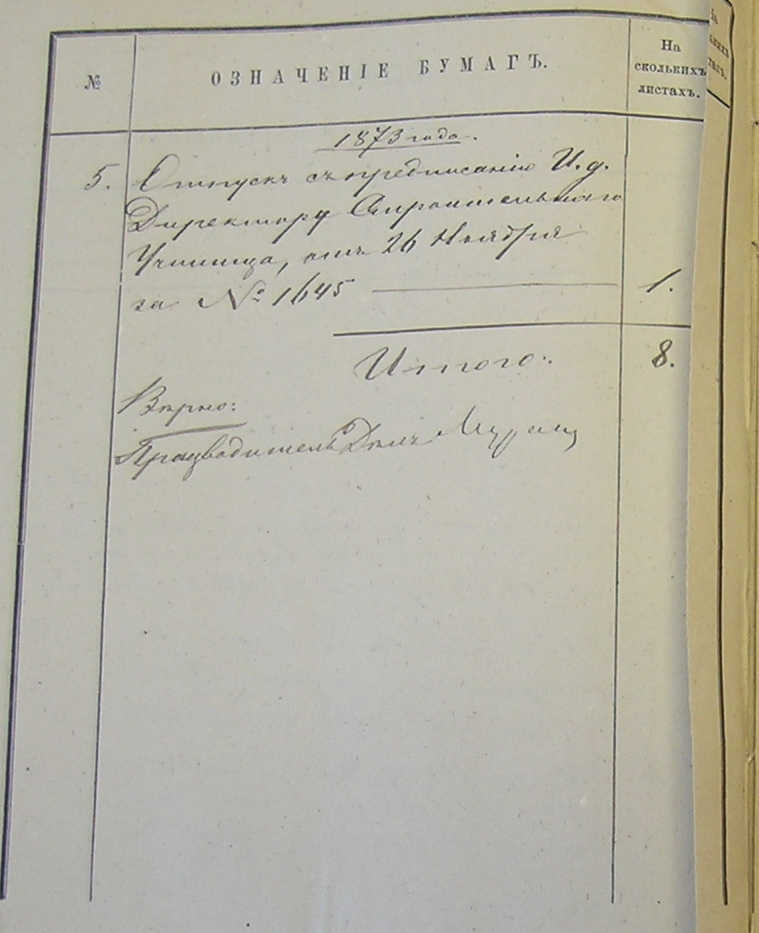 №
ОЗНАЧЕНІЕ БУМАГЪ.
На
сколькихъ
листахъ.
1873 года.
5. Отпускъ съ предписанія И. д.
Директору Строительнаго
Училища, отъ 26 Ноября
за № 1645 — 1.
Итого: 8.
Вѣрно:
Производитель Дѣлъ